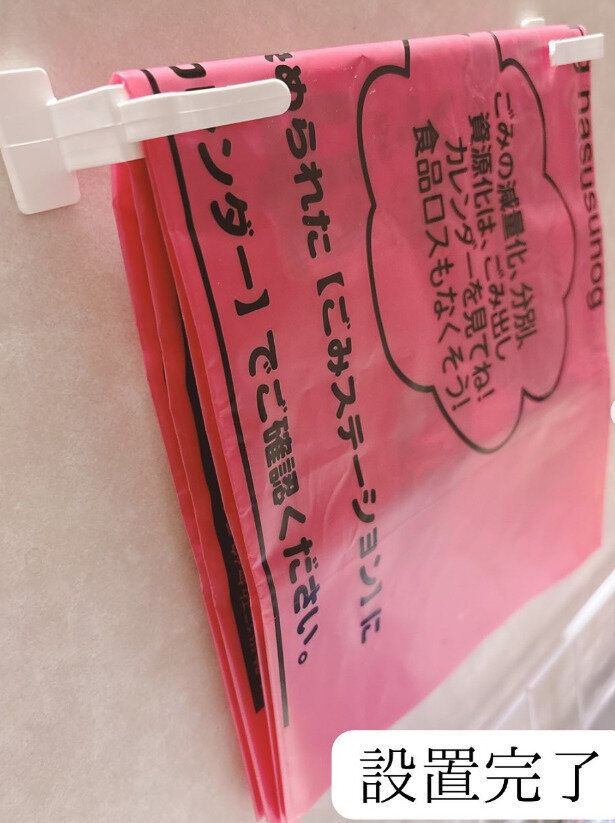 g nasusunog
ごみの減量化、分別、
資源化は、ごみ出し
カレンダーを見てね!
食品ロスもなくそう!
められた【ごみステーション】に
レンダー】でご確認ください。
設置完了